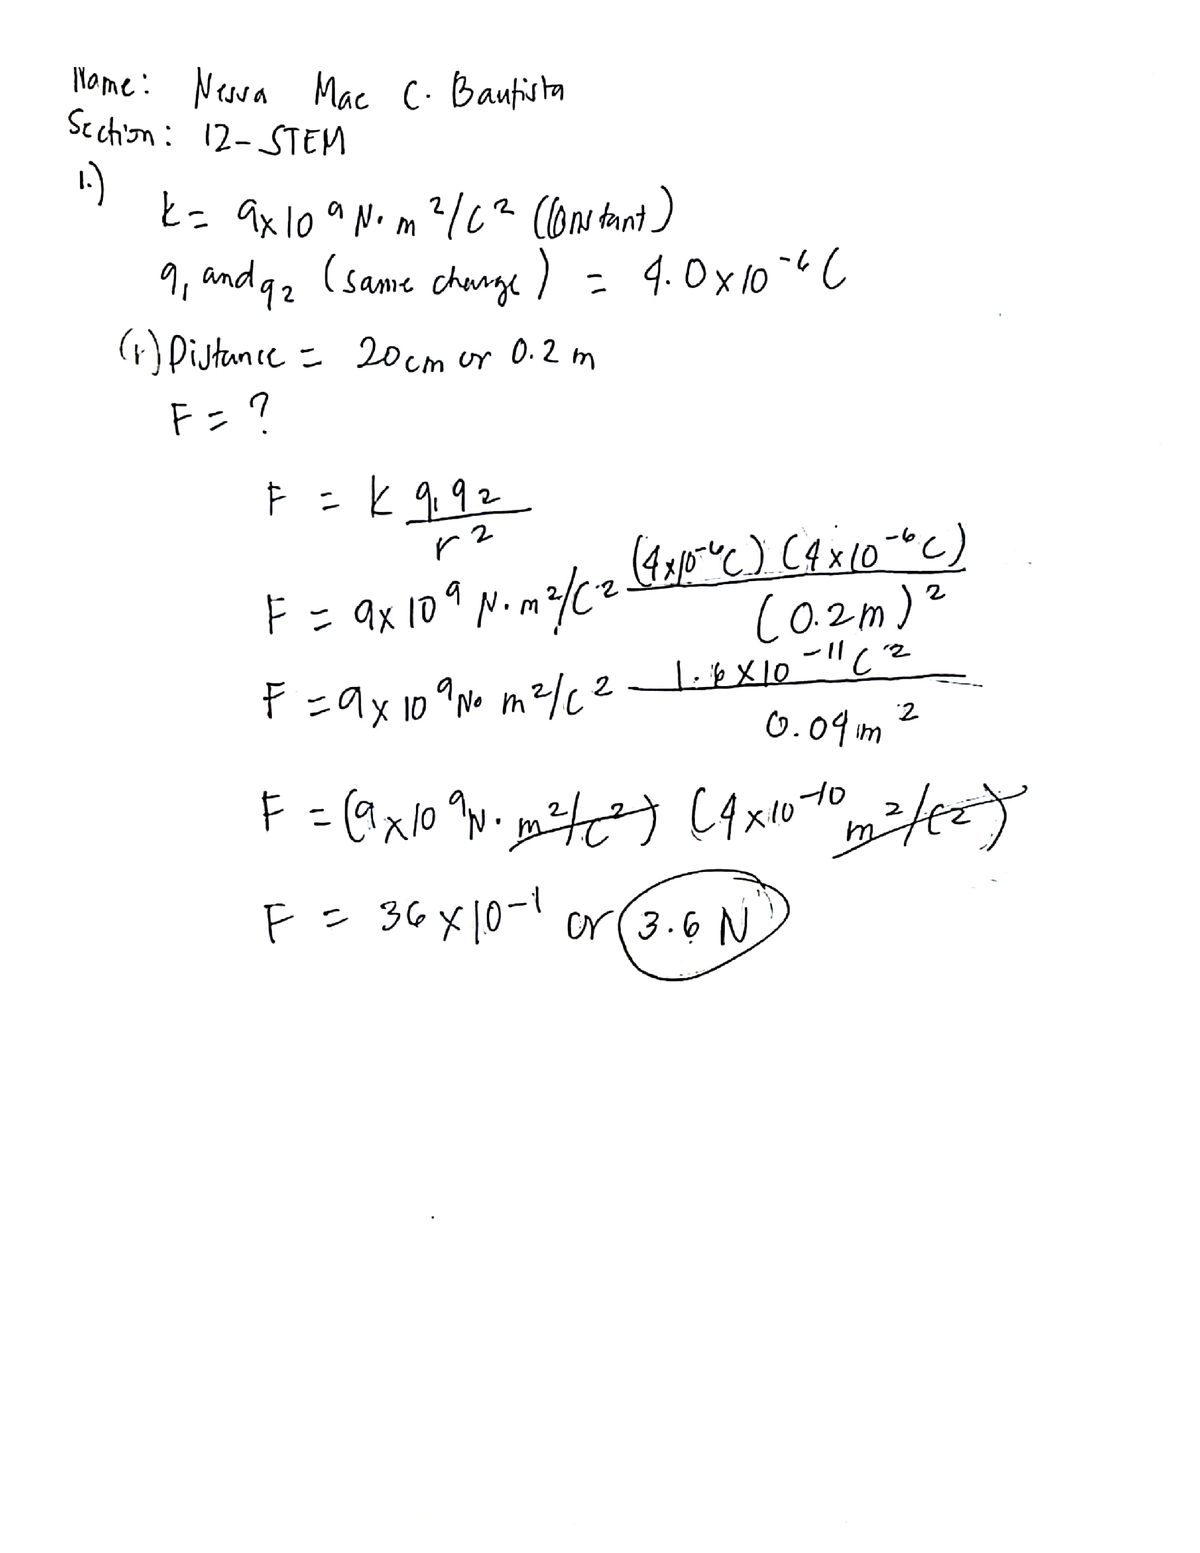 Name: Nessa Mae C. Bautista
Section: 12-STEM
1.)
k = 9x10⁹ N·m²/C² (Constant)
q₁ and q₂ (same charge) = 4.0x10⁻⁶ C
(r) Distance = 20cm or 0.2 m
F = ?
F = k q₁q₂ / r²
F = 9x10⁹ N·m²/C² (4x10⁻⁶C) (4x10⁻⁶C) / (0.2m)²
F = 9x10⁹ N· m²/C² 1.6x10⁻¹¹C² / 0.04m²
F = (9x10⁹N·m²/C²) (4x10⁻¹⁰ m²/C²)
F = 36x10⁻¹ or 3.6 N